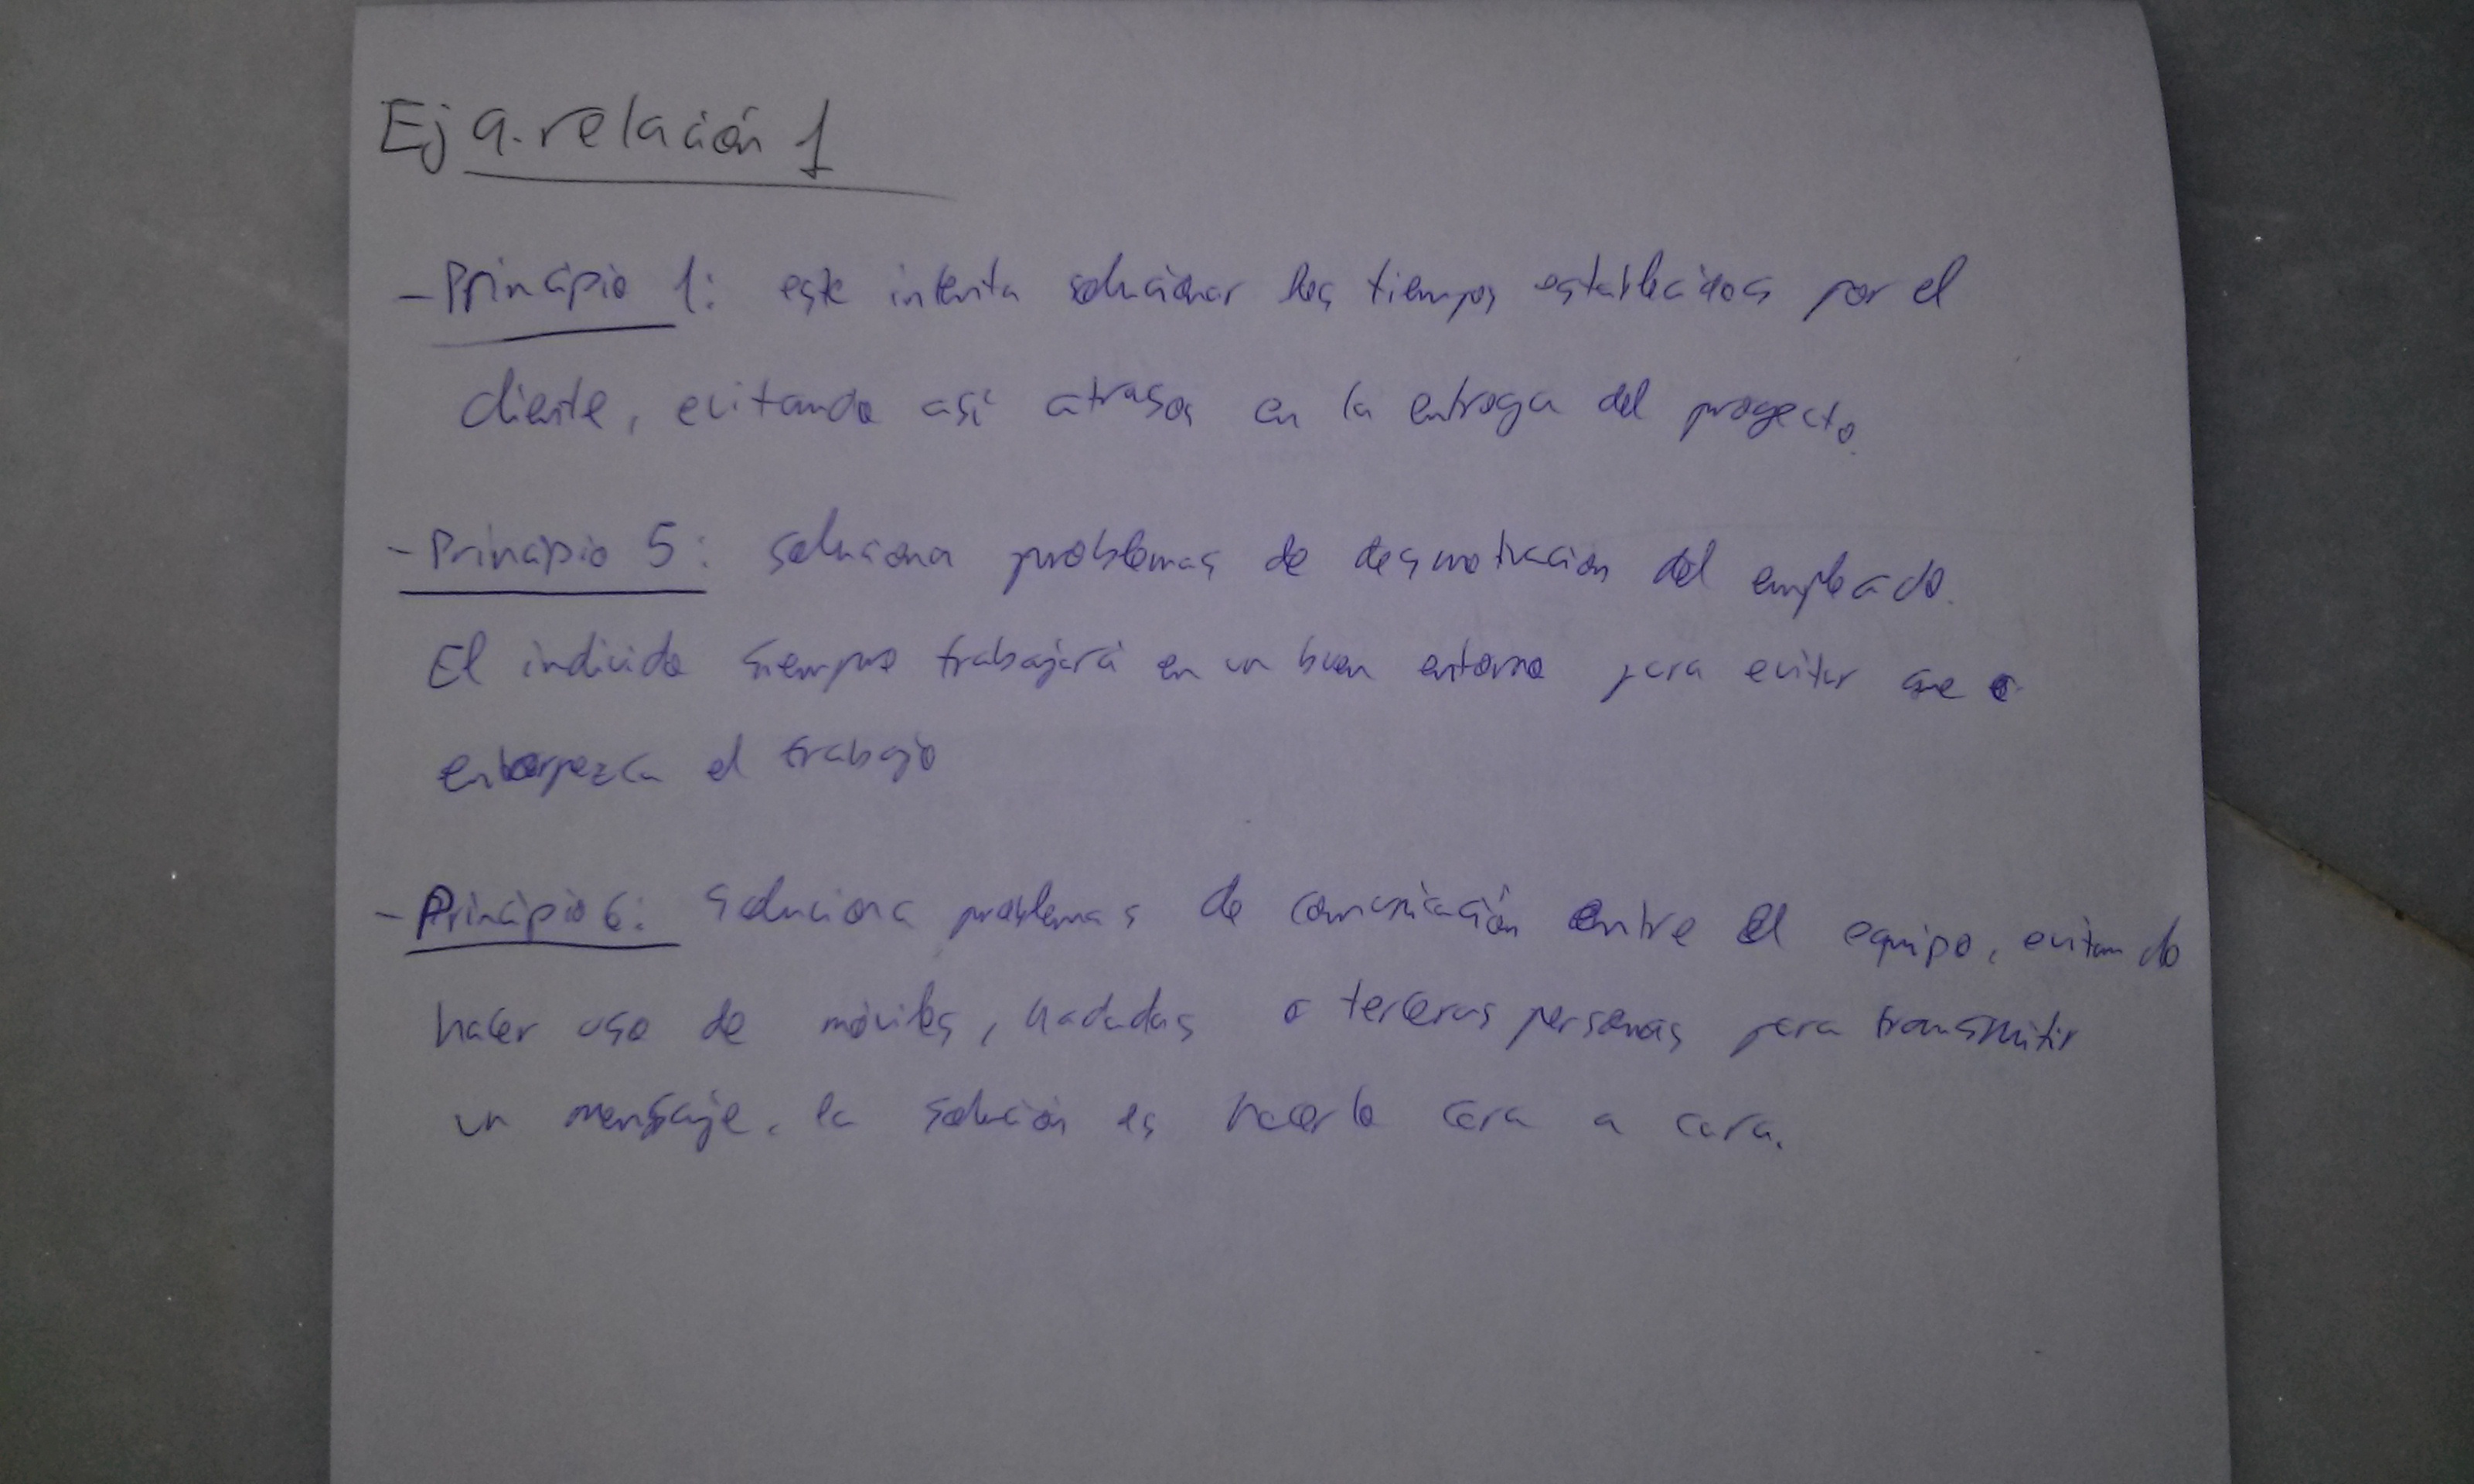 Ej 9. relación 1
- Principio 1: este intenta solucionar los tiempos establecidos por el
cliente, evitando así atrasos en la entrega del proyecto.
- Principio 5: soluciona problemas de desmotivación del empleado.
El individo siempre trabajará en un buen entorno para evitar que
entorpezca el trabajo
- Principio 6: soluciona problemas de comunicación entre el equipo, evitando
hacer uso de móviles, o terceras personas para transmitir
un mensaje. la solución es hacerlo cara a cara.